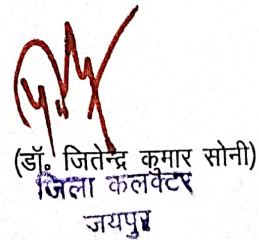 (डॉ. जितेन्द्र कुमार सोनी)
जिला कलक्टर
जयपुर